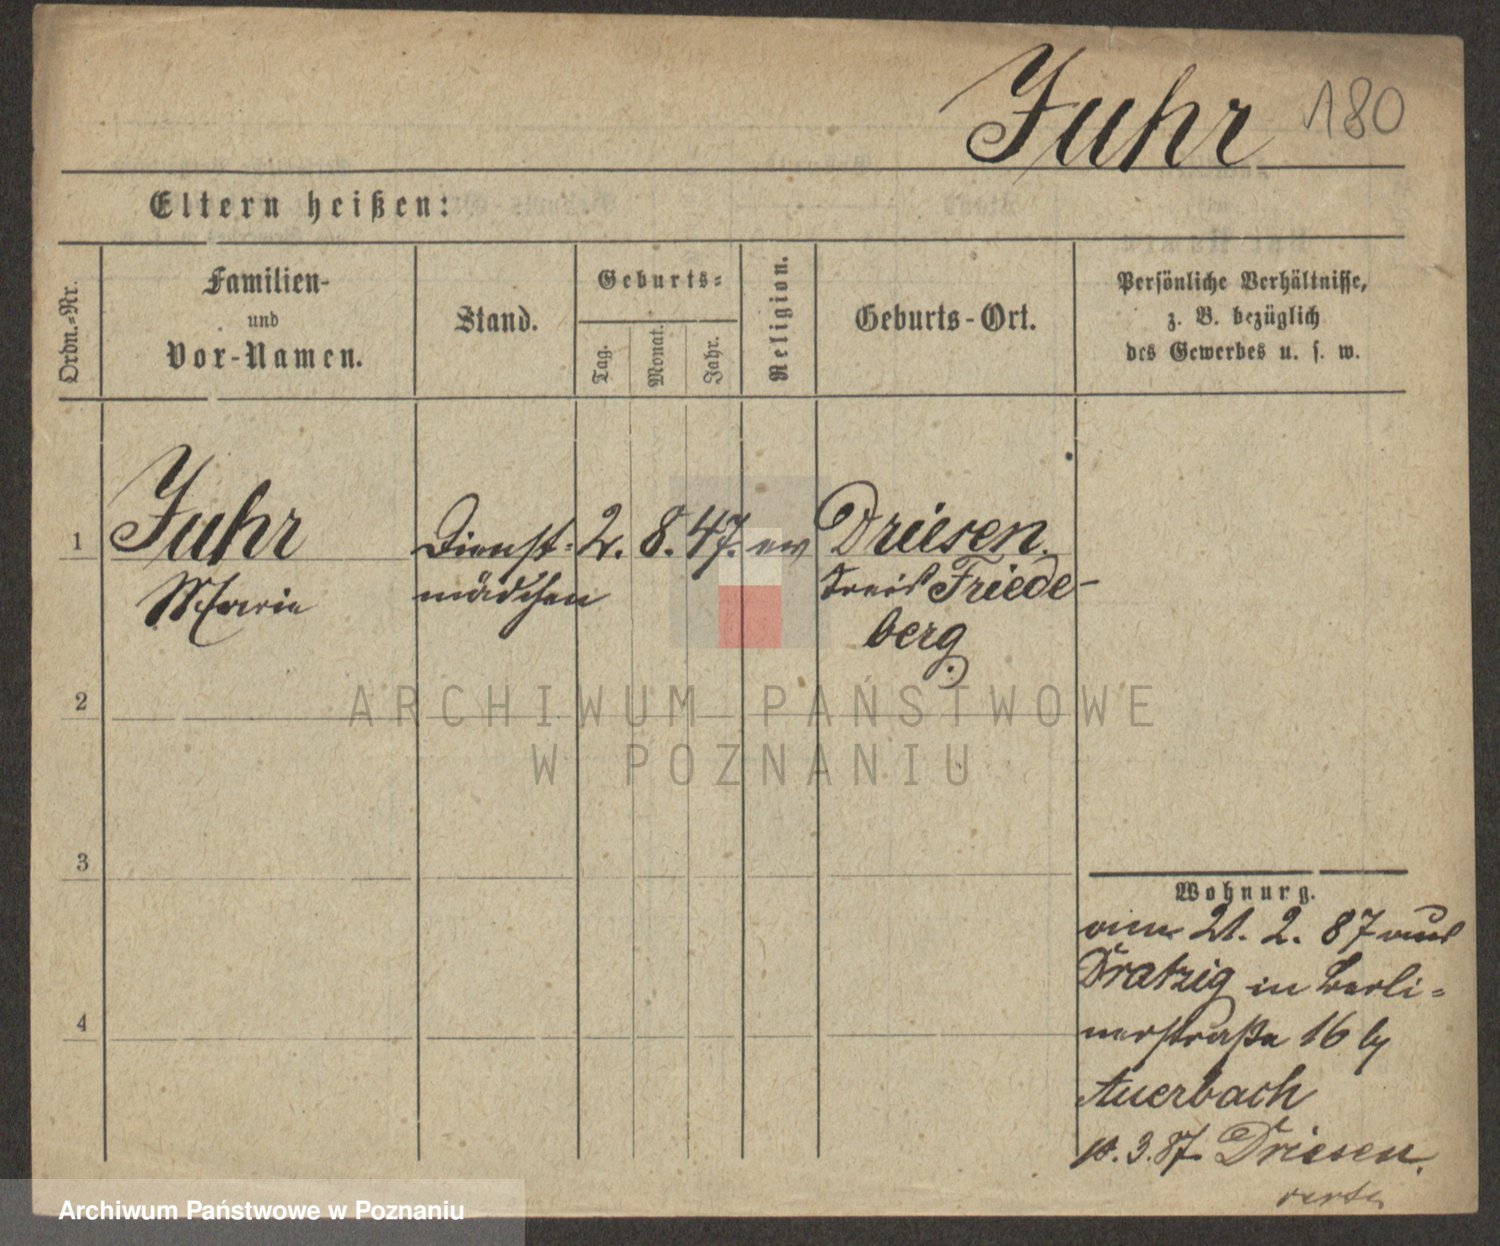 Fuhr 180
Eltern heißen:
Ordn.-Nr.
Familien-
und
Vor-Namen.
Stand.
Geburts-
Tag.
Monat.
Jahr.
Religion.
Geburts-Ort.
Persönliche Verhältnisse,
z. B. bezüglich
des Gewerbes u. s. w.
1 Fuhr Dienst- 2. 8. 47. ev Driesen.
Marie mädchen Kreis Friede-
berg.
2
ARCHIWUM PAŃSTWOWE
W POZNANIU
3
Wohnung.
am 21. 2. 87 aus
Dratzig in Berli-
nerstraße 16 by
4
Auerbach
3. 87. Driesen.
Archiwum Państwowe w Poznaniu